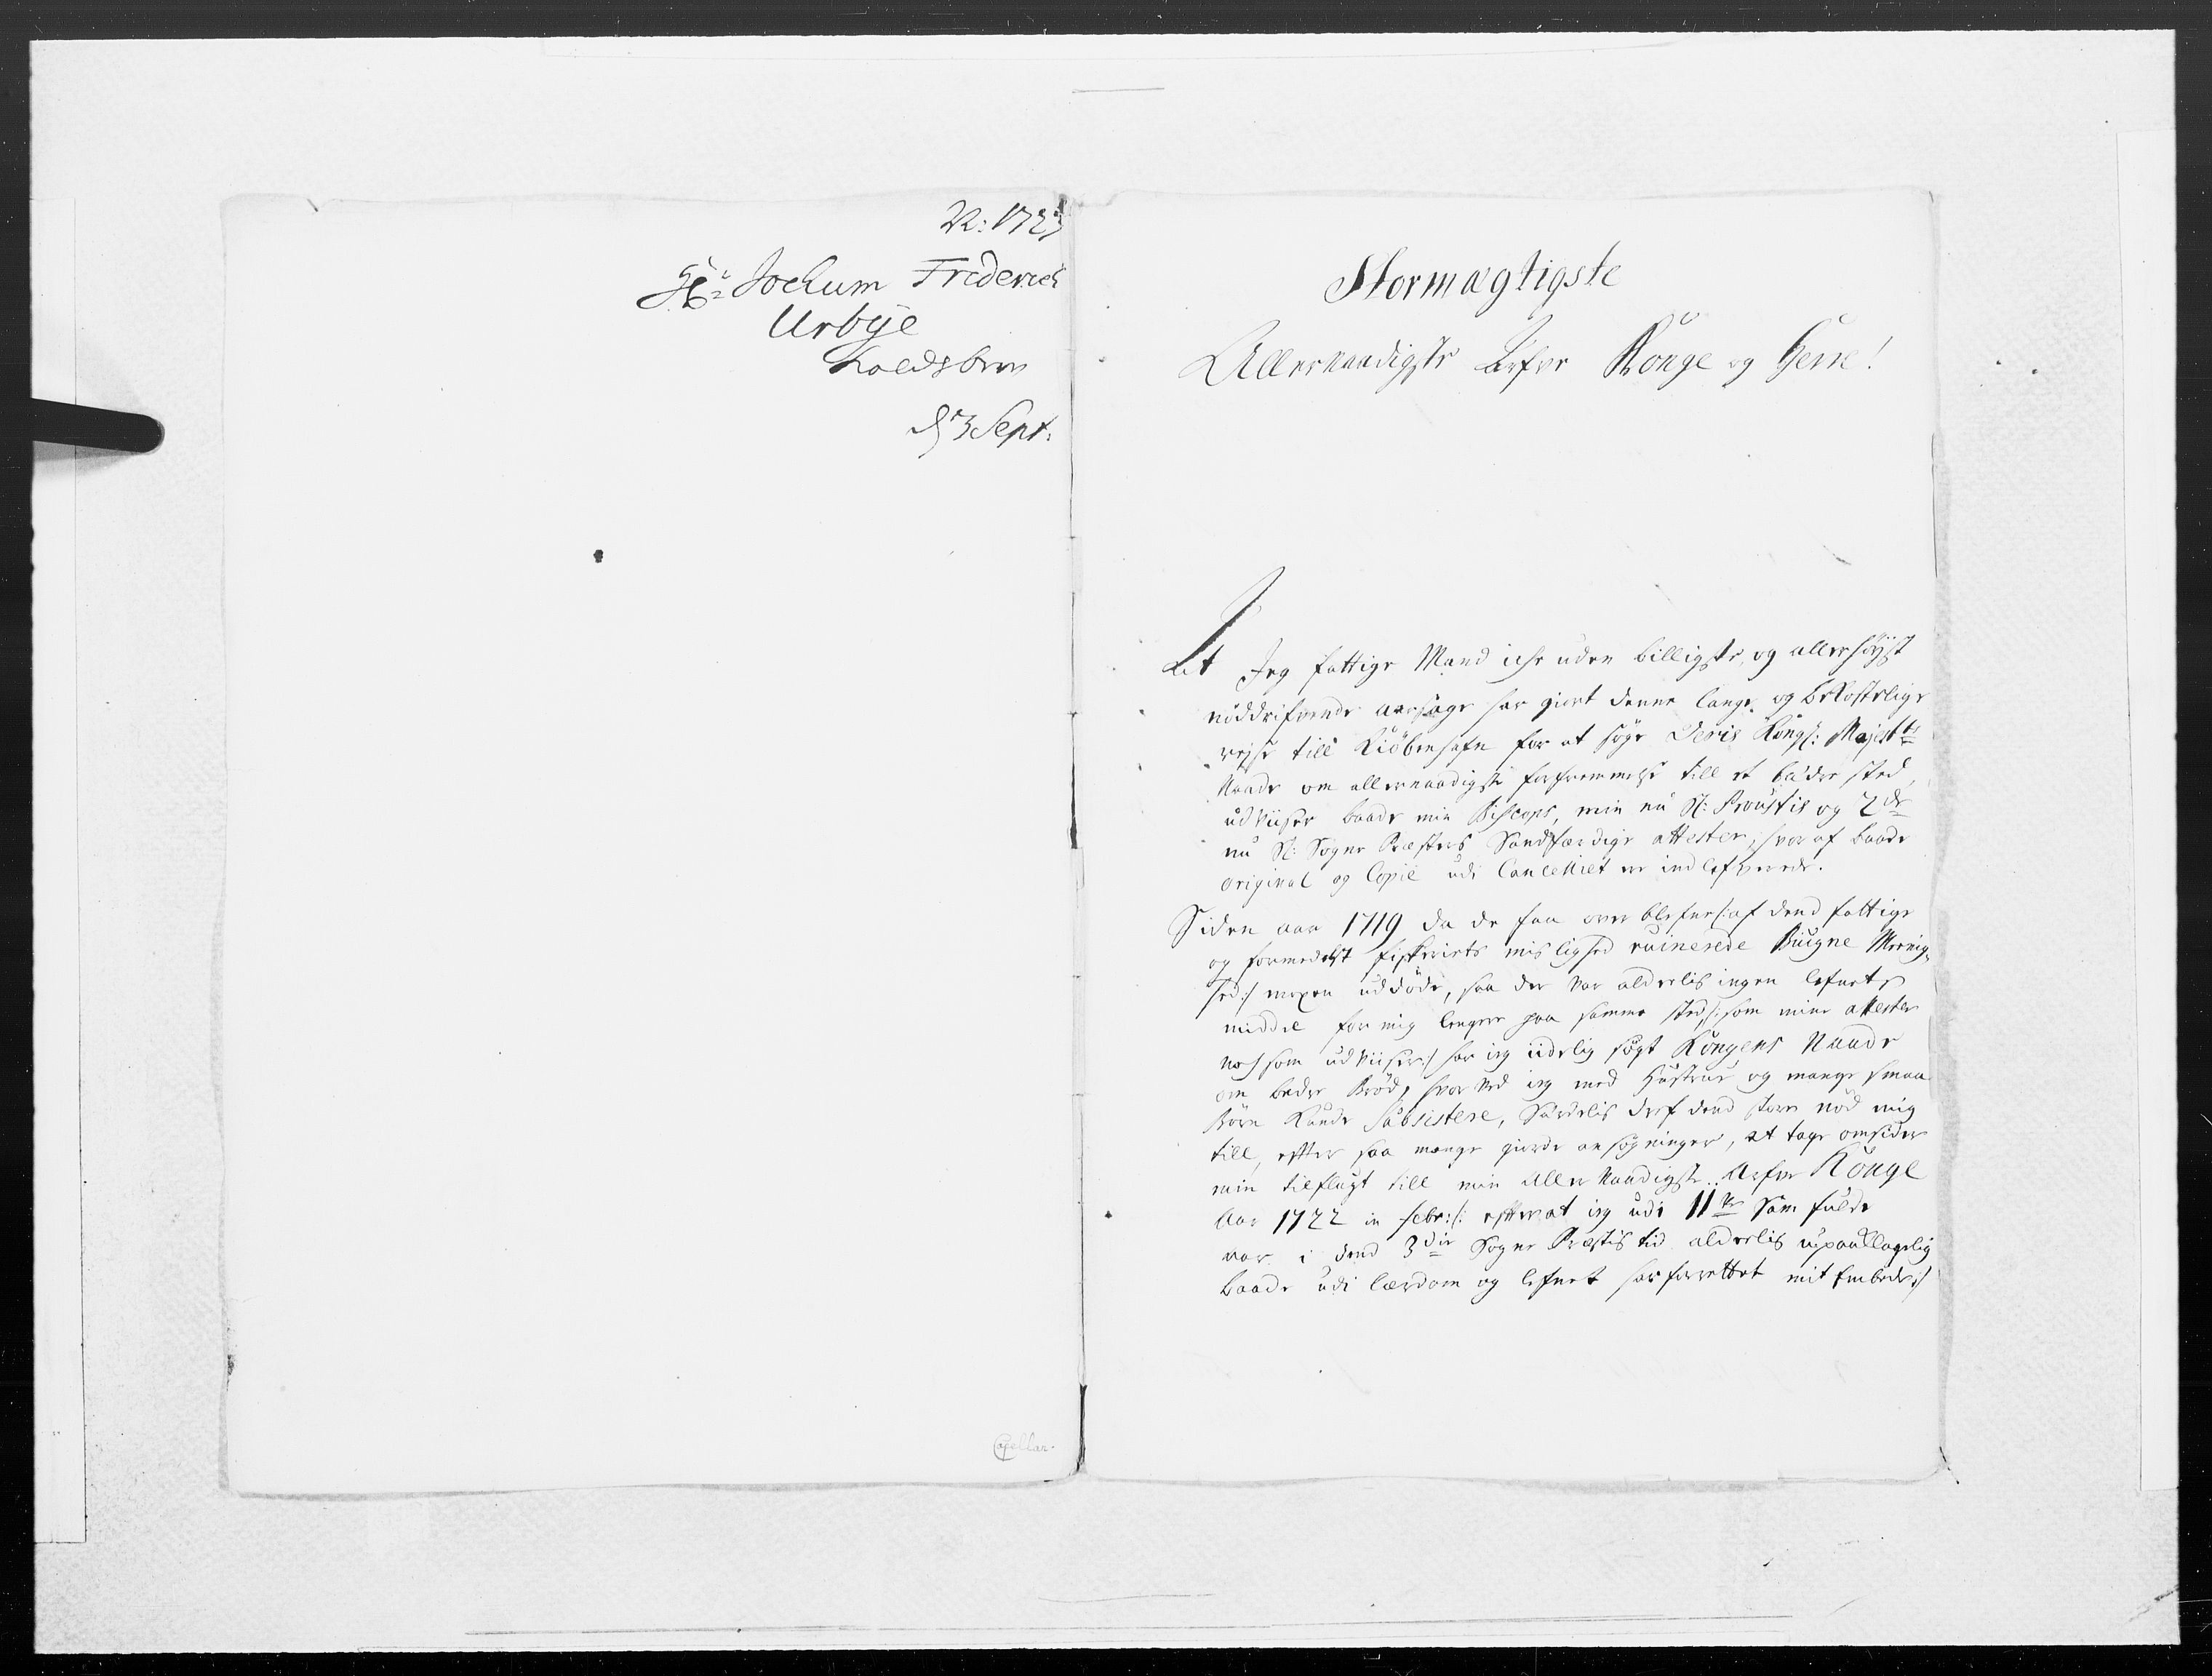 N: 1723
Hr: Jochum Friderich
Urbÿe
d 3 Sept:
Capellan.
Stormægtigste
Allernaadigste Arfve Konge og Herre!
At Jeg fattige Mand iche uden billigste, og allerhöÿst
nöddrifvende aarsage har giort denne lange og bekostelige
rejse till Kiöbenhafn for at søge Deris Kongl: Majestts
Naade om allernaadigste forfremmelse till et bædre sted,
udviiser baade min Biscops, min nu Sl: Proustis og 2de
nu Sl: Sogne Præsters Sandfærdige attester, hvoraf baade
original og Copie udi Cancelliet er indlefverede.
Siden aar 1719 da de faa over blefne /: af dend fattige
og formedelst fiskeriets mislighed ruinerede Buigne Meenig-
hed :/ mesten uddöde, saa der var alderlis ingen lefnets
middel for mig lengere paa samme sted /: som mine attester
noch som udviiser :/ har ieg iidelig søgt Kongens Naade
om bedre Bröd, hvor ved ieg med Hustrue og mange smaa
Börn Kunde Subsistere, Særdelis dref dend store nöd mig
till, efter saa mange giorde ansögninger, at tage omsider
min tilflugt till min Aller Naadigste Arfve Konge
Aar 1722 in febr: /: efter at ieg udi 11te Sam fulde
aar i dend 3die Sogne Præstis tid alderlis upaaklagelig
baade udi lærdom og lefnet har forrettet mit Embede :/